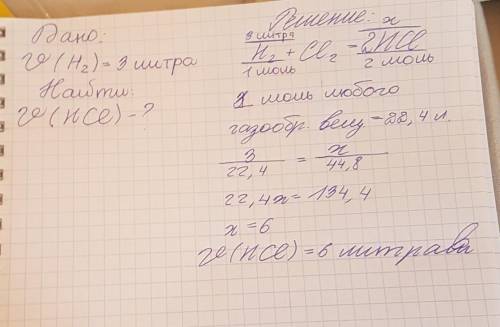 Дано:
V(H₂) = 3 литра
Найти:
V(HCl) - ?
Решение:
3 литра x
H₂ + Cl₂ = 2HCl
1 моль 2 моль
1 моль любого
газообр. вещ = 22,4 л.
3/22,4 = x/44,8
22,4x = 134,4
x = 6
V(HCl) = 6 литрам